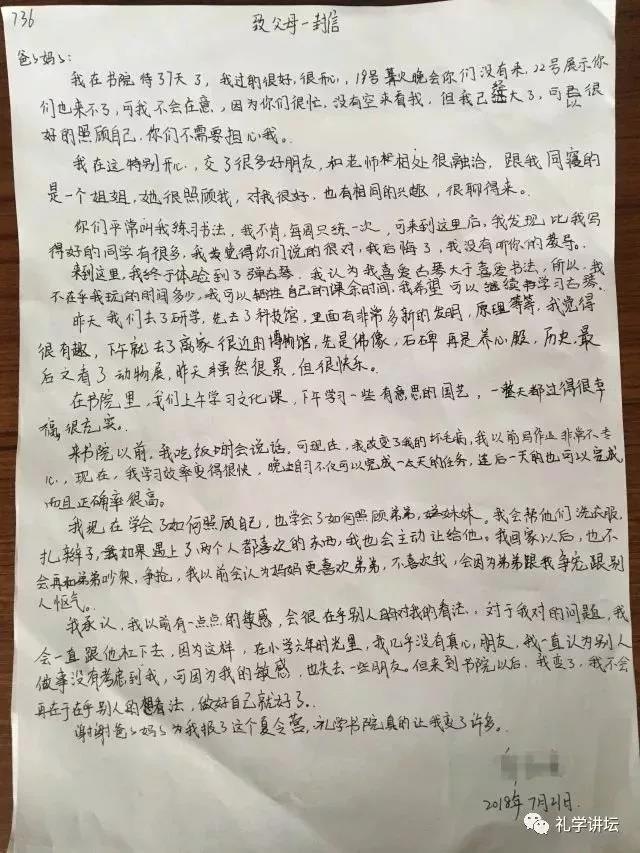 736
致父母一封信
爸爸妈妈:
我在书院待37天了,我过的很好,很开心,19号篝火晚会你们没有来,22号展示你
们也来不了,可我不会在意,因为你们很忙,没有空来看我,但我已经长大了,可以很
好的照顾自己,你们不需要担心我。
我在这特别开心,交了很多好朋友,和老师相处很融洽,跟我同寝的
是一个姐姐,她很照顾我,对我很好,也有相同的兴趣,很聊得来。
你们平常叫我练习书法,我不肯,每周只练一次,可来到这里后,我发现比我写
得好的同学有很多,我发觉得你们说的很对,我后悔了,我没有听你的教导。
来到这里,我终于体验到了弹古琴。我认为我喜爱古琴大于喜爱书法,所以,我
不在乎我玩的时间多少,我可以牺牲自己的课余时间,我希望可以继续学习古琴。
昨天我们去了研学,先去了科技馆,里面有非常多新的发明,原理等等,我觉得
很有趣,下午就去了离家很近的博物馆,先是佛像,石碑再是养心殿,历史,最
后又看了动物展,昨天虽然很累,但很快乐。
在书院里,我们上午学习文化课,下午学习一些有意思的国艺,一整天都过得很幸
福,很充实。
来书院以前,我吃饭时会说话,可现在,我改变了我的坏毛病,我以前写作业非常不专
心,现在,我学习效率变得很快,晚上自习不仅可以完成一天的任务,连后一天的也可以完成
而且正确率很高。
我现在学会了如何照顾自己,也学会了如何照顾弟弟,妹妹。我会帮他们洗衣服,
扎辫子,如果遇上了两个人都喜欢的东西,我也会主动让给他。我回家以后,也不
会再和弟弟吵架,争抢,我以前会认为妈妈更喜欢弟弟,不喜欢我,会因为弟弟跟我争宠跟别
人怄气。
我承认,我以前有一点点的敏感,会很在乎别人对我的看法,对于我对的问题,我
会一直跟他杠下去,因为这样,在小学六年时光里,我几乎没有真心朋友,我一直认为别人
做事没有考虑到我,可因为我的敏感,也失去一些朋友。但来到书院以后,我变了,我不会
再在于在乎别人的看法,做好自己就好了。
谢谢爸爸妈妈为我报了这个夏令营,礼学书院真的让我变了许多。
2018年7月21日.
礼学讲坛